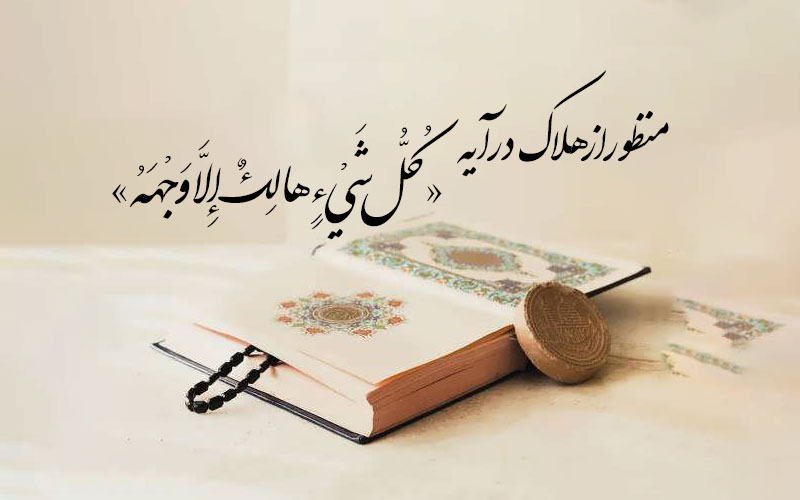 منظور از هلاک در آیه
«كُلُّ شَيْءٍ هالِكٌ إِلَّا وَجْهَهُ»